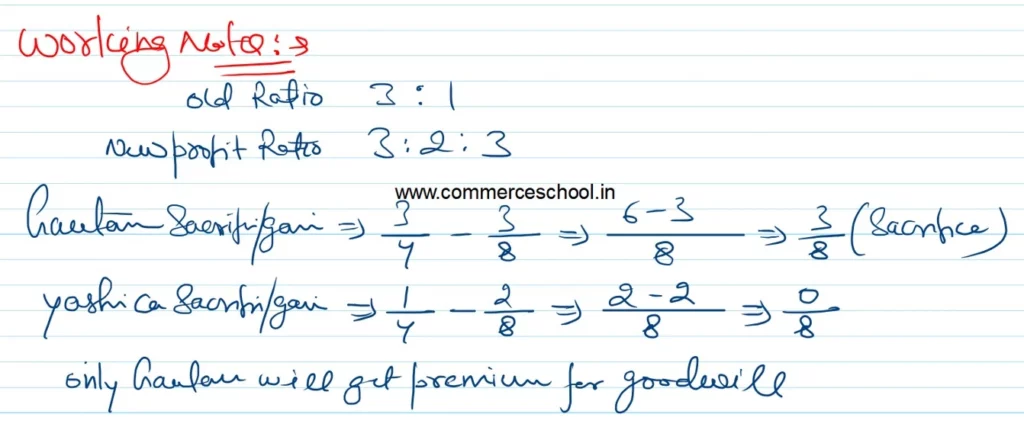 Working Note:-
Old Ratio 3 : 1
New profit Ratio 3 : 2 : 3
www.commerceschool.in
Gautam Sacrifi/gain ⇒ 3/4 - 3/8 ⇒ 6-3/8 ⇒ 3/8 (Sacrifice)
Yashica Sacrifi/gain ⇒ 1/4 - 2/8 ⇒ 2-2/8 ⇒ 0/8
only Gautam will get premium for goodwill